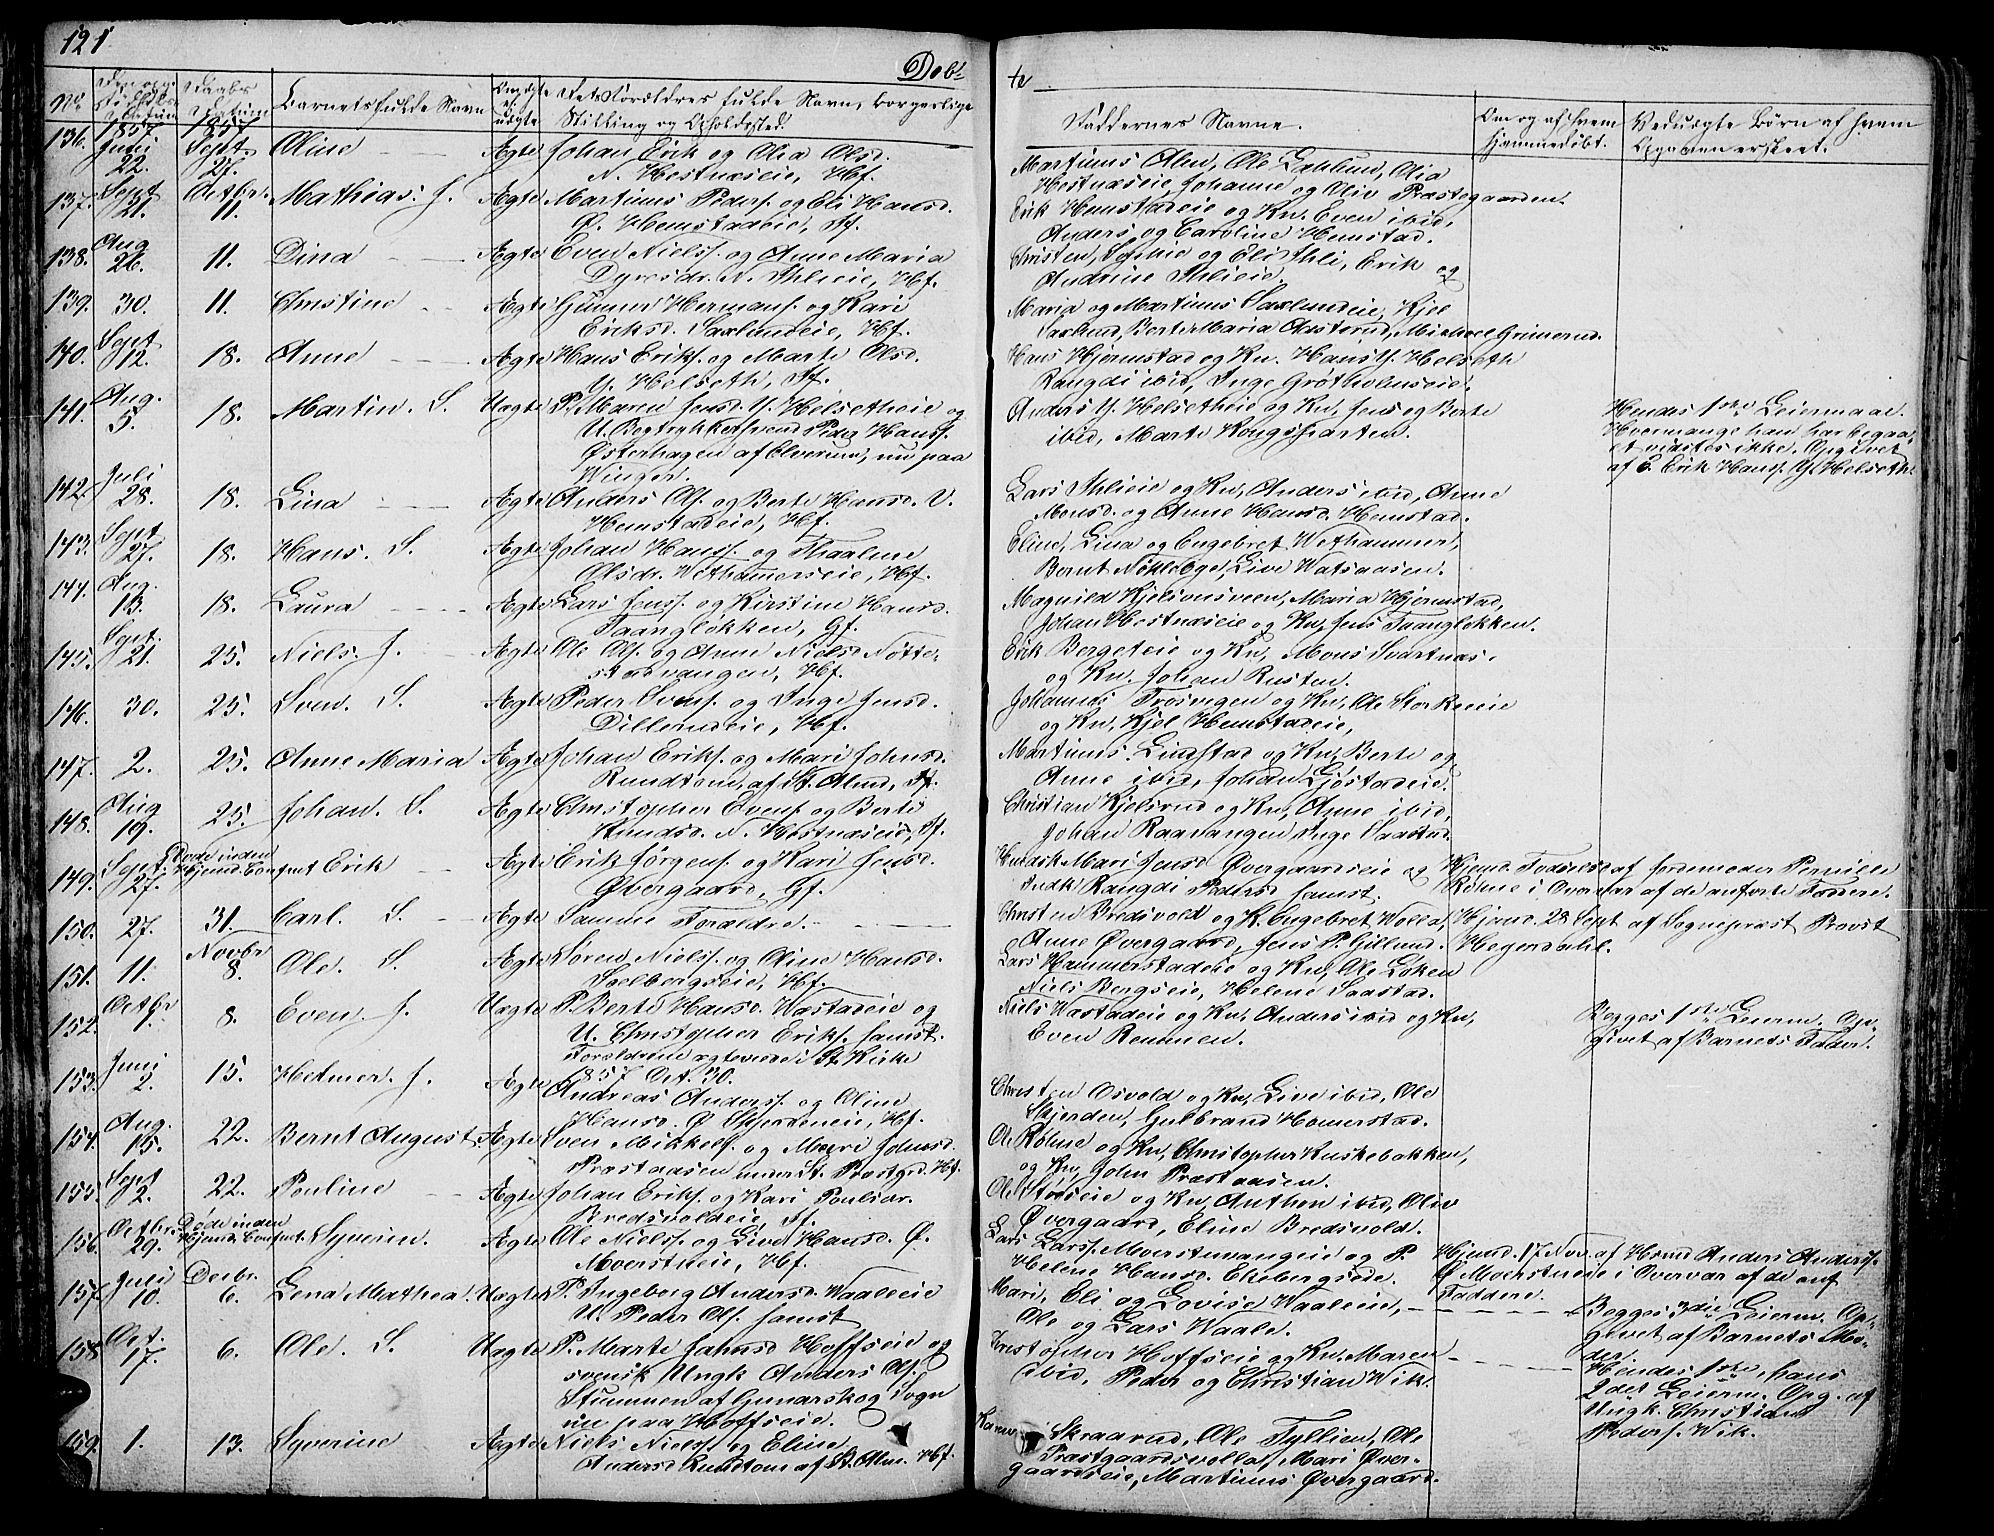 121
Døbte
No
Barnets fulde Navn
Forældres fulde Navn, borgerlige
Stilling og Opholdssted.
Faddernes Navne.
Om og af hvem
hjemmedøbt.
Ved uægte Børn af hvem
Opgaven er skeet.
136. 1857 Juni 22. 1857 Sept. 27. Oline Ægte Johan Erik og Olia Olsd.
N. Hestnæseie, Hf.
Martinus Alm, Ole Laklund, Olia
Hestnæseie, Johanne og Oliv Præstegaarden.
137. Sept 21. Octbr. 11. Mathias. J. Ægte Martinus Peders. og Eli Hansd.
Ø. Hemstadeie, If.
Erik Hemstadeie og Kn. Even ibid,
Anders og Caroline Hemstad.
138. Aug 26. 11. Dina Ægte Even Nielss. og Anne Maria
Dyresdr. N. Ihlieie, Hf.
Christen, Sophie og Eli Ihli, Erik og
Andrine Ihlieie.
139. 30. 11. Christine Ægte Gunner Hermans. og Kari
Eriksd. Saxlundeie, Hf.
Maria og Martinus Saxlundeie, Kjel
Saxlund, Berte Maria Austerud, Michael Grimerud.
140. Sept 12. 18. Anne Ægte Hans Eriks. og Marte Olsd.
Y. Helseth, If.
Hans Hjermstad og Kn. Hans Y. Helseth
Rangdi ibid, Inge Grøtholmseie.
141. Aug. 5. 18. Martin. S. Uægte P. Maren Jensd. Y. Helsetheie og
U. Bogtrykkersvend Peder Hanss.
Østerhagen af Elverum, nu paa
Winger.
Anders Y. Helsetheie og Kn, Jens og Berte
ibid, Marte Kongsparten.
Hendes 1ste Leiermaal.
Hvormange han har begaa-
et vidstes ikke. Opgivet
af E. Erik Hans. Y. Helseth.
142. Juli 28. 18. Lina Ægte Anders Ols. og Berte Hansd. V.
Hemstadeie, Hf.
Lars Ihlieie og Kn, Anders ibid, Anne
Monsd. og Anne Hansd. Hemstad.
143. Sept 27. 18. Hans. S. Ægte Johan Hanss. og Thaaline
Olsdr. Wethammerseie, Hf.
Eline, Lina og Engebret Wethammer,
Bernt Nökleby, Live Watsaasen.
144. Aug. 13. 18. Laura Ægte Lars Jenss. og Kirstine Hansd.
Taangløkken, Gf.
Magnild Kjelsonsveen, Maria Hjermstad,
Johan Hestnæseie og Kn, Jens Taangløkken.
145. Sept. 21. 25. Niels. J. Ægte Ole Ols. og Anne Nielsd Nötte-
stadvangen, Hf.
Erik Bergeteie og Kn, Mons Svartnæs
og Kn. Johan Rusten.
146. 30. 25. Sven. S. Ægte Peder Svens. og Inge Jensd.
Dillerudeie, Hf.
Johannes Frøsvegen og Kn, Ole Stor Reeie
og Kn, Kjel Hemstadeie,
147. 2. 25. Anne Maria Ægte Johan Eriks. og Mari Johnsd.
Rundtom, af St. Almd, If.
Martinus Lindstad og Kn, Berte og
Anne ibid, Johan Gjöstadeie.
148. Aug 19. 25. Johan. S. Ægte Christopher Evens. og Berte
Knudsd. N. Hestnæseie, If.
Christian Kjelsrud og Kn, Anne ibid,
Johan Raavangen, Inge Saastad.
149. Sept. 27. Døde inden Hjemd. Confmt Erik Ægte Erik Jørgens. og Kari Jensd.
Øvergaard, Gf.
Mari Jensd Øvergaardseie og
Indk Rangdi Pedersd samst.
Hjemd. Fødsels af Jordemoder Pernille
Røhne i Overvær af de anførte Faddere.
150. 27. 31. Carl. S. Ægte Samme Forældre.
Christen Bredsvold og K. Engebret Wolla,
Anne Øvergaard, Jens P. Gillund.
Hjemd. 28 Sept af Sognepræst Provst
Hegerdahl.
151. 11. Novbr 8. Ole. S. Ægte Søren Nielss. og Oline Hansd.
Solbergseie, Hf.
Lars Hammerstadeie og Kn, Ole Løken
Niels Bergseie, Helene Saastad.
152. Octbr 1. 8. Even. J. Uægte P. Berte Hansd. Wastadeie og
U. Christopher Eriks. samst.
Forældrene ægteviede i St. Kirke
1857 Oct. 30.
Niels Wastadeie og Kn, Anders ibid og Kn,
Even Remmen.
Begges 1ste Leierm. Op-
givet af Barnets Fader.
153. Juni 2. 15. Helmer. J. Ægte Andreas Anderss. og Oline
Hansd. Ø Skjerdeneie, Hf.
Christen Osvold og Kn, Live ibid, Ole
Skjerden, Gulbrand Homerstad.
154. Aug. 15. 22. Bernt August Ægte Sven Mikkels. og Mari Johnsd.
Præstaasen under St. Præstgd. Hf.
Ole Røhne og Kn, Christopher Kuskebakken,
og Kn, John Præstaasen.
155. Sept 2. 22. Pouline Ægte Johan Eriks. og Kari Poulsdr.
Bredsvoldeie, If.
Ole Stöseie og Kn, Anthon ibid, Oliv
Øvergaard, Eline Bredsvold.
156. Octbr. 29. Døde inden Hjemd. Confmt. Syverin. Ægte Ole Nielss. og Live Hansd. Ø.
Moerstueie, Hf.
Lars Larss. Moerstuvangeie og P.
Helene Hansd. Ekebergsede.
Hjemd. 17 Nov. af Hmd Anders Anders.
Ø Moerstueie i Overvær af de anf
Faddere.
157. Juli 10. Decbr. 6. Lena Mathea. Uægte P. Ingeborg Andersd. Waaleeie
U. Peder Ols. samst
Mari, Eli og Lovise Waaleeie,
Ole og Lars Waale.
Begges 3die Leierm. Op-
givet af Barnets Mo-
der.
158 Oct. 17. 6. Ole. S. Uægte P. Marte Johnsd Hoffseie og
svensk Ungk Anders Ols.
Stummen af Gunarskog Sogn
nu paa Hoffseie.
Christopher Hoffseie og Kn. Maren
ibid. Peder og Christian Wik.
Hendes 1ste, hans
2det Leierm. Opg. af
Ungk. Christian
Peders. Wik.
159. 1. 13. Syverine Ægte Niels Nielss. og Eline
Andersd Rundtom af St. Alm. Hf.
Karen Skraarud, Ole Fyllien, Ole
Præstgaardsvolla, Mari Øver-
gaardseie, Martinus Øvergaard.